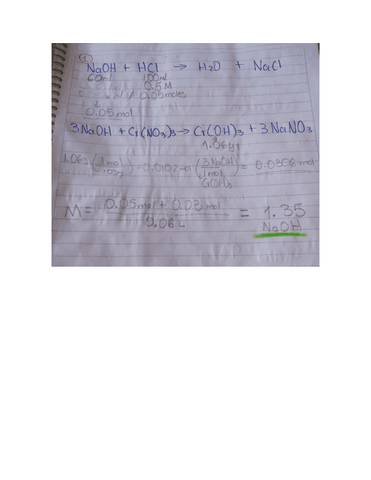 1
NaOH + HCl → H₂O + NaCl
60ml 100ml
0.5 M
0.05 moles
0.05 mol
3 NaOH + Cr(NO₃)₃ → Cr(OH)₃ + 3 NaNO₃
1.06g
1.06g (1 mol / 103g) = 0.0102 mol (3 NaOH / 1 mol Cr(OH)₃) = 0.0306 mol
M = 0.05 mol + 0.03 mol / 0.06 L = 1.35
NaOH